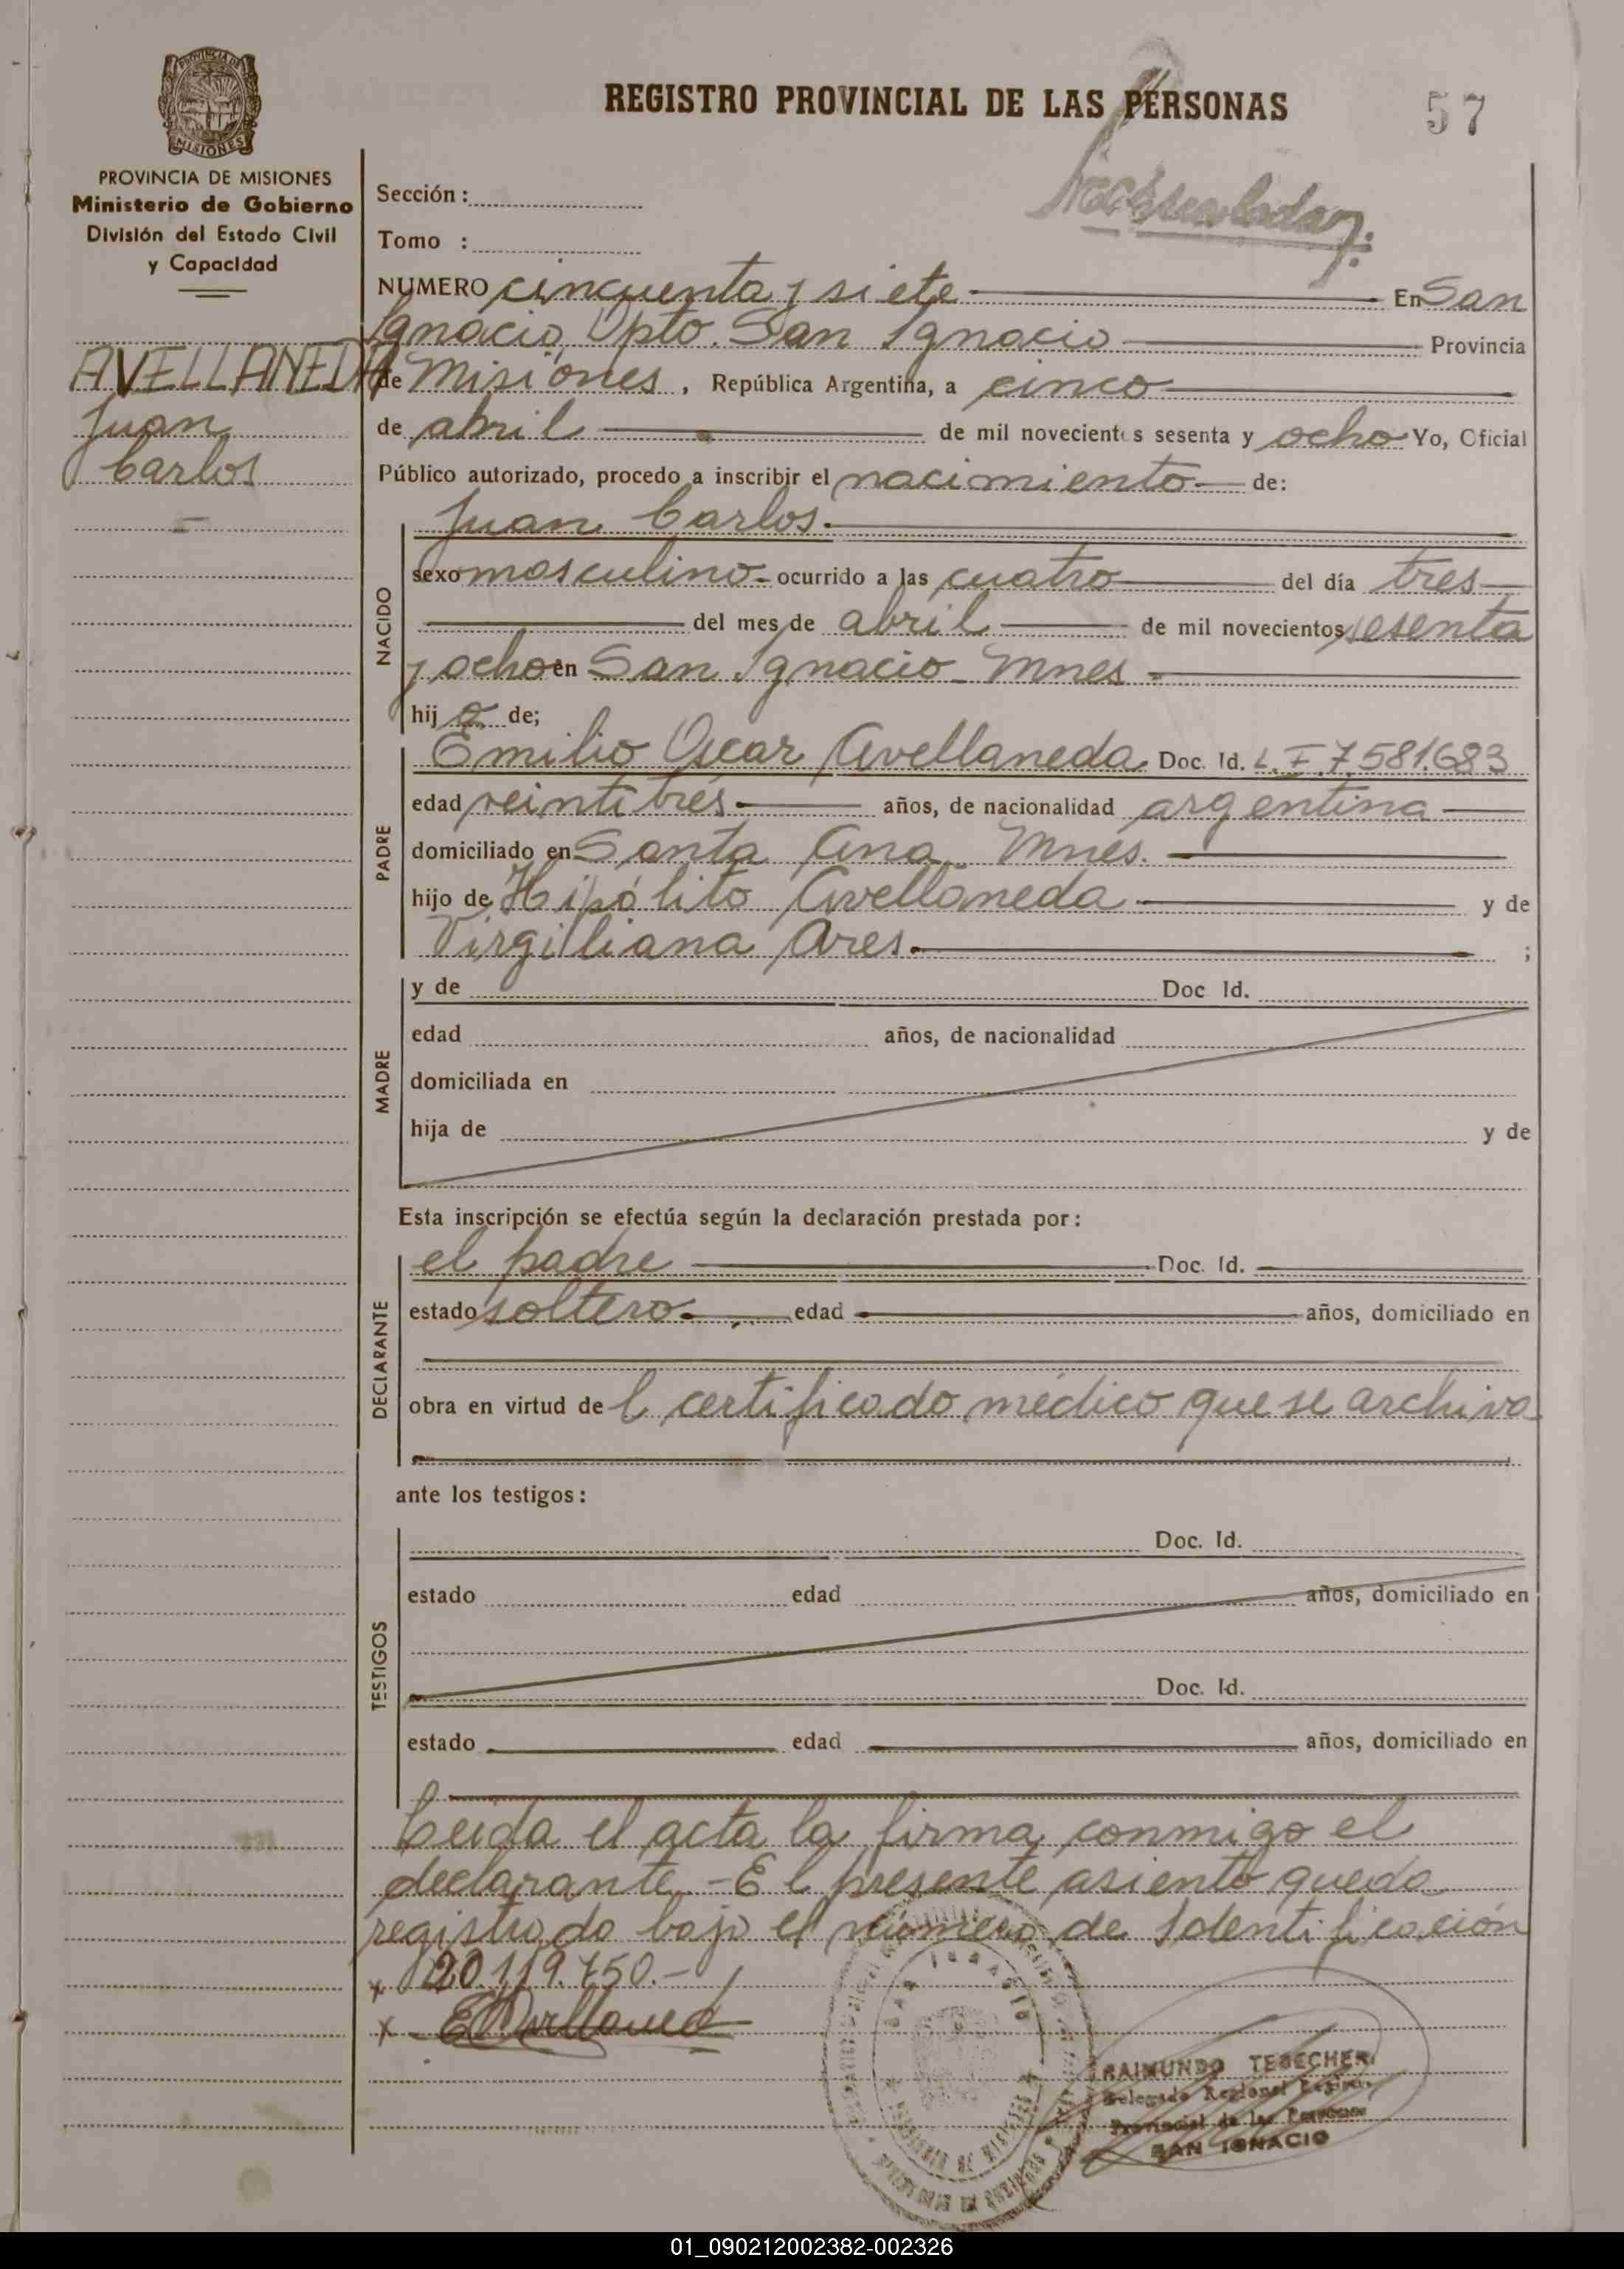 REGISTRO PROVINCIAL DE LAS PERSONAS
57
MISIONES
PROVINCIA DE MISIONES
Ministerio de Gobierno
División del Estado Civil
y Capacidad
AVELLANEDA
Juan
Carlos
Sección :
Tomo :
NUMERO cincuenta y siete En San
Ignacio, Dpto. San Ignacio Provincia
de Misiones , República Argentina, a cinco
de abril de mil novecientos sesenta y ocho Yo, Oficial
Público autorizado, procedo a inscribir el nacimiento de:
NACIDO
Juan Carlos.
sexo masculino ocurrido a las cuatro del día tres
del mes de abril de mil novecientos sesenta
y ocho en San Ignacio - Mnes -
hij o de;
PADRE
Emilio Oscar Avellaneda Doc. Id. L. E. 7.581.683
edad veintitres años, de nacionalidad argentina
domiciliado en Santa Ana Mnes.
hijo de Hipólito Avellaneda y de
Virgiliana Ares. ;
MADRE
y de Doc Id.
edad años, de nacionalidad
domiciliada en
hija de y de
Esta inscripción se efectúa según la declaración prestada por:
DECLARANTE
el padre Doc. Id.
estado soltero. edad años, domiciliado en
obra en virtud de l certificado médico que se archiva
ante los testigos:
TESTIGOS
Doc. Id.
estado edad años, domiciliado en
Doc. Id.
estado edad años, domiciliado en
Leida el acta la firma conmigo el
declarante - El presente asiento queda
registrado bajo el número de Identificación
20.119.750.-
RAIMUNDO TEBECHER
Delegado Regional
Provincial de las Personas
SAN IGNACIO
01_090212002382-002326